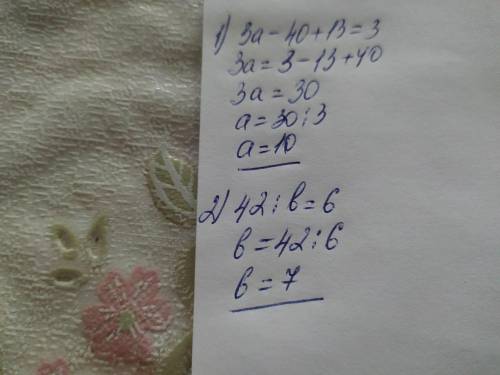 1) 3a - 40 + 13 = 3
3a = 3 - 13 + 40
3a = 30
a = 30 : 3
a = 10
2) 42 : в = 6
в = 42 : 6
в = 7